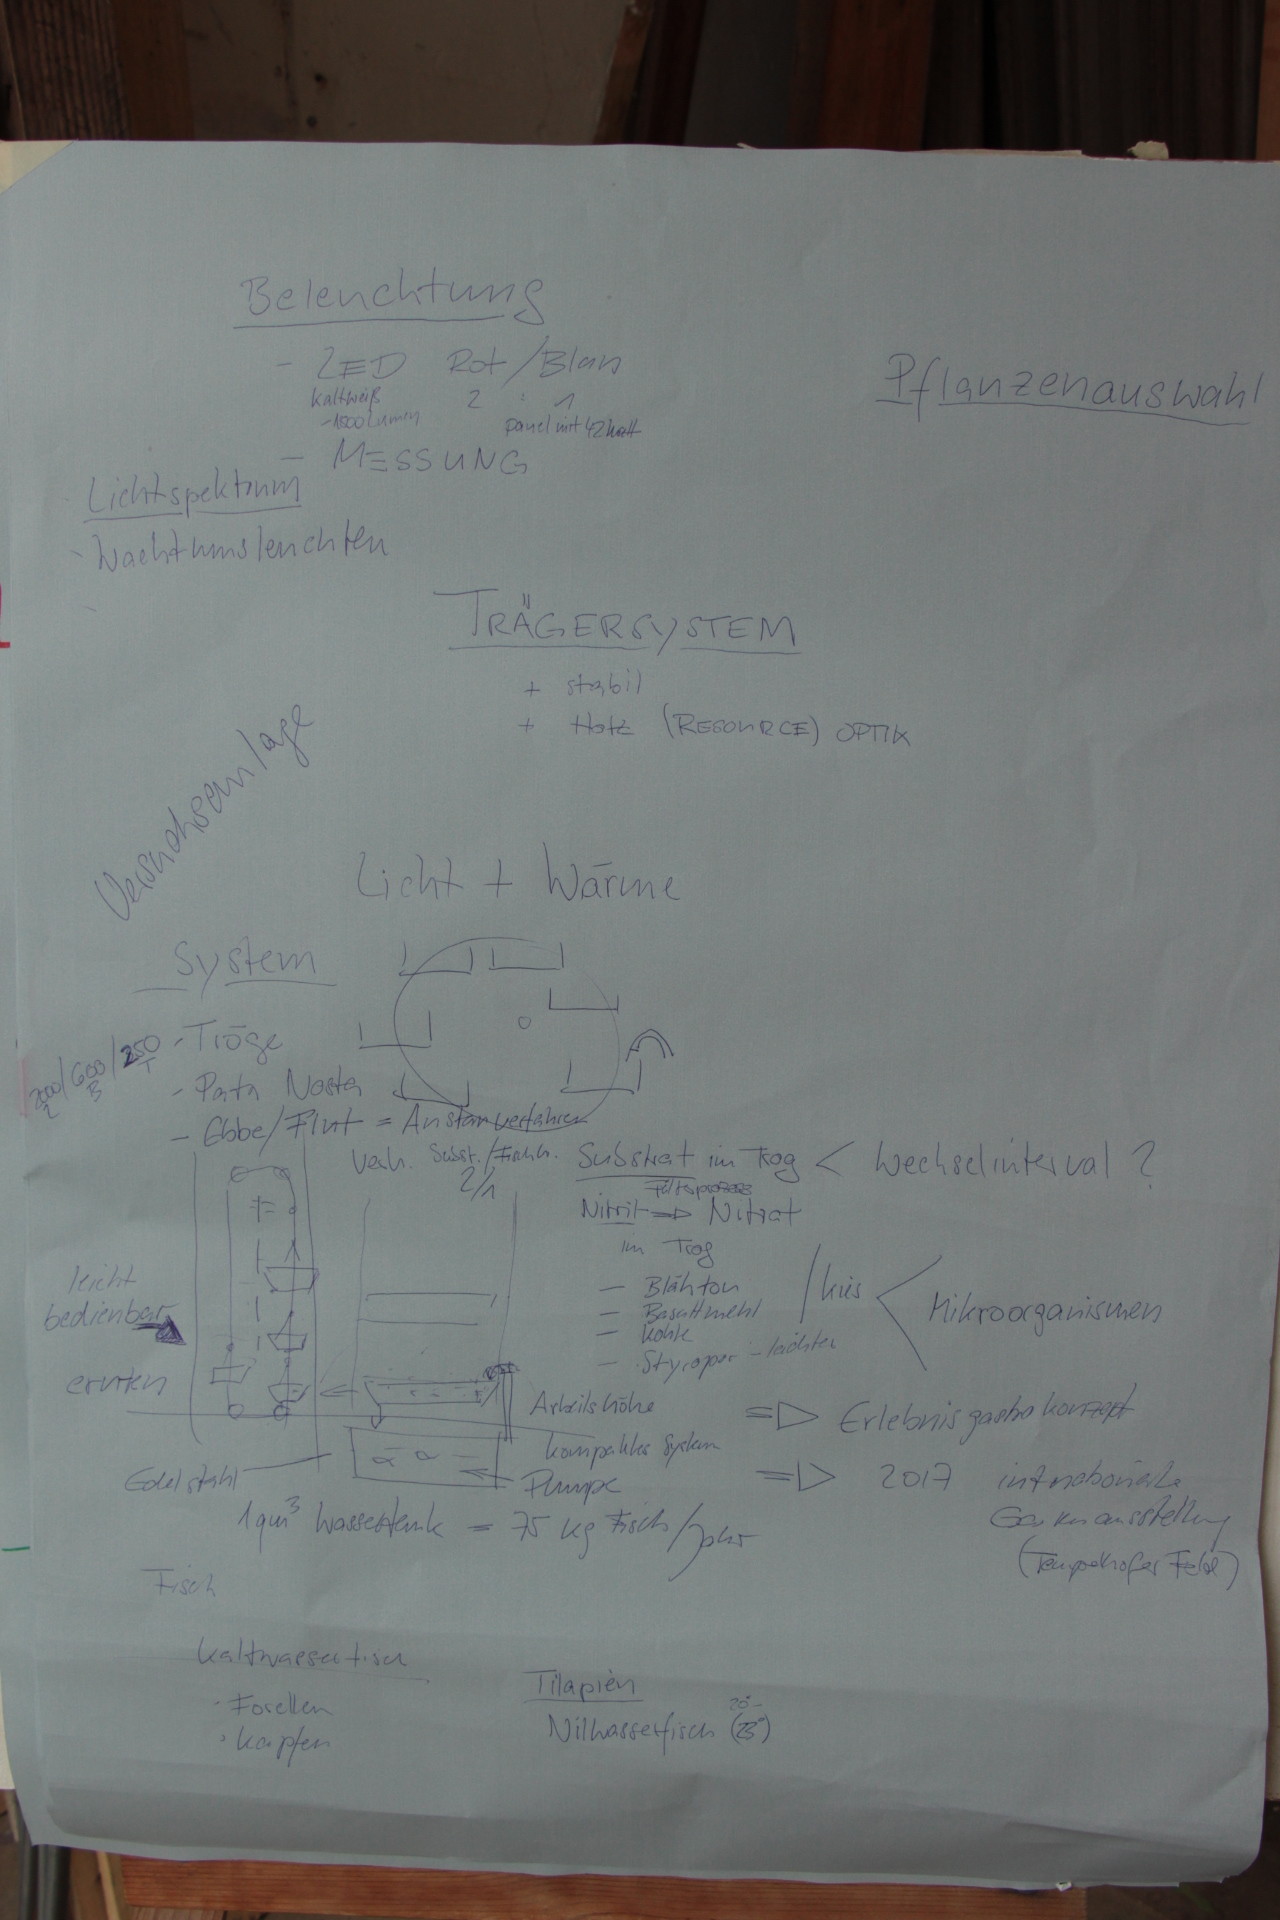 Beleuchtung
- LED Rot / Blau
kaltweiß 2 : 1
~1800 Lumen panel mit 42 Watt
- MESSUNG
Lichtspektrum
- Wachtumsleuchten
Pflanzenauswahl
TRÄGERSYSTEM
+ stabil
+ Holz (RESOURCE) OPTIK
Versuchsanlage
Licht + Wärme
System
- Tröge
2000/600/250
L B T
- Pata Noster
- Ebbe/Flut = Anstauverfahren
Verh. Subst./Fischh.
2/1
Substrat im Trog < Wechselinterval ?
Filterprozess
Nitrit => Nitrat
im Trog
- Blähton
- Basaltmehl
- Kohle
- Styropor - leichter
/ kies < Mikroorganismen
leicht
bedienbar
ernten
Arbeitshöhe
kompaktes System
Pumpe
Edelstahl
=> Erlebnisgastrokonzept
=> 2017 internationale
Gartenausstellung
(Tempelhofer Feld)
1qm³ Wassertank = 75 kg Fisch/Jahr
Fisch
Kaltwasserfisch
· Forellen
· Kapfen
Tilapien
Nilwasserfisch (23°)
20°-